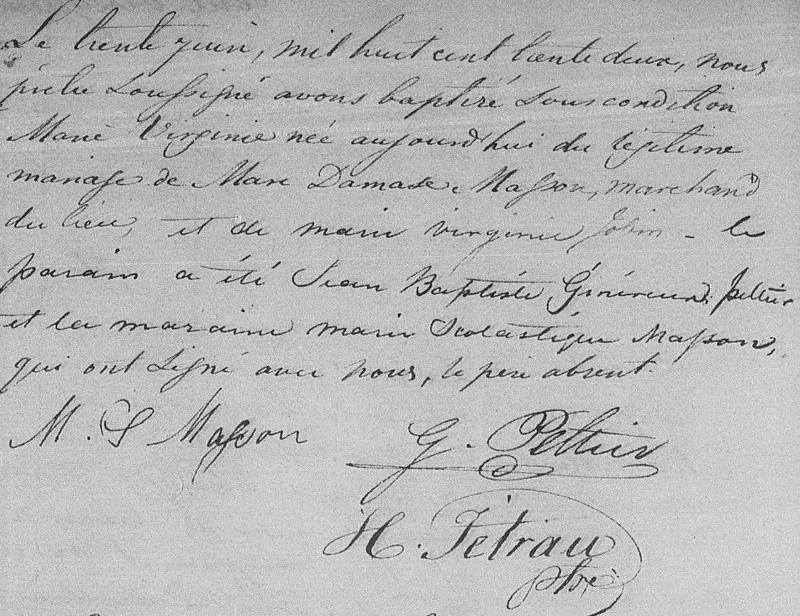 Le trente juin, mil huit cent trente deux, nous
prêtre soussigné avons baptizé sous condition
Marie Virginie née aujourd'hui du légitime
mariage de Marc Damase Masson, marchand
du lieu, et de marie virginie Jobin - le
parain a été Jean Baptiste Généreux peltier
et la maraine marie Scolastique Masson,
qui ont signé avec nous, le père absent.
M. S Masson G. Peltier
H. Tétrau
ptre